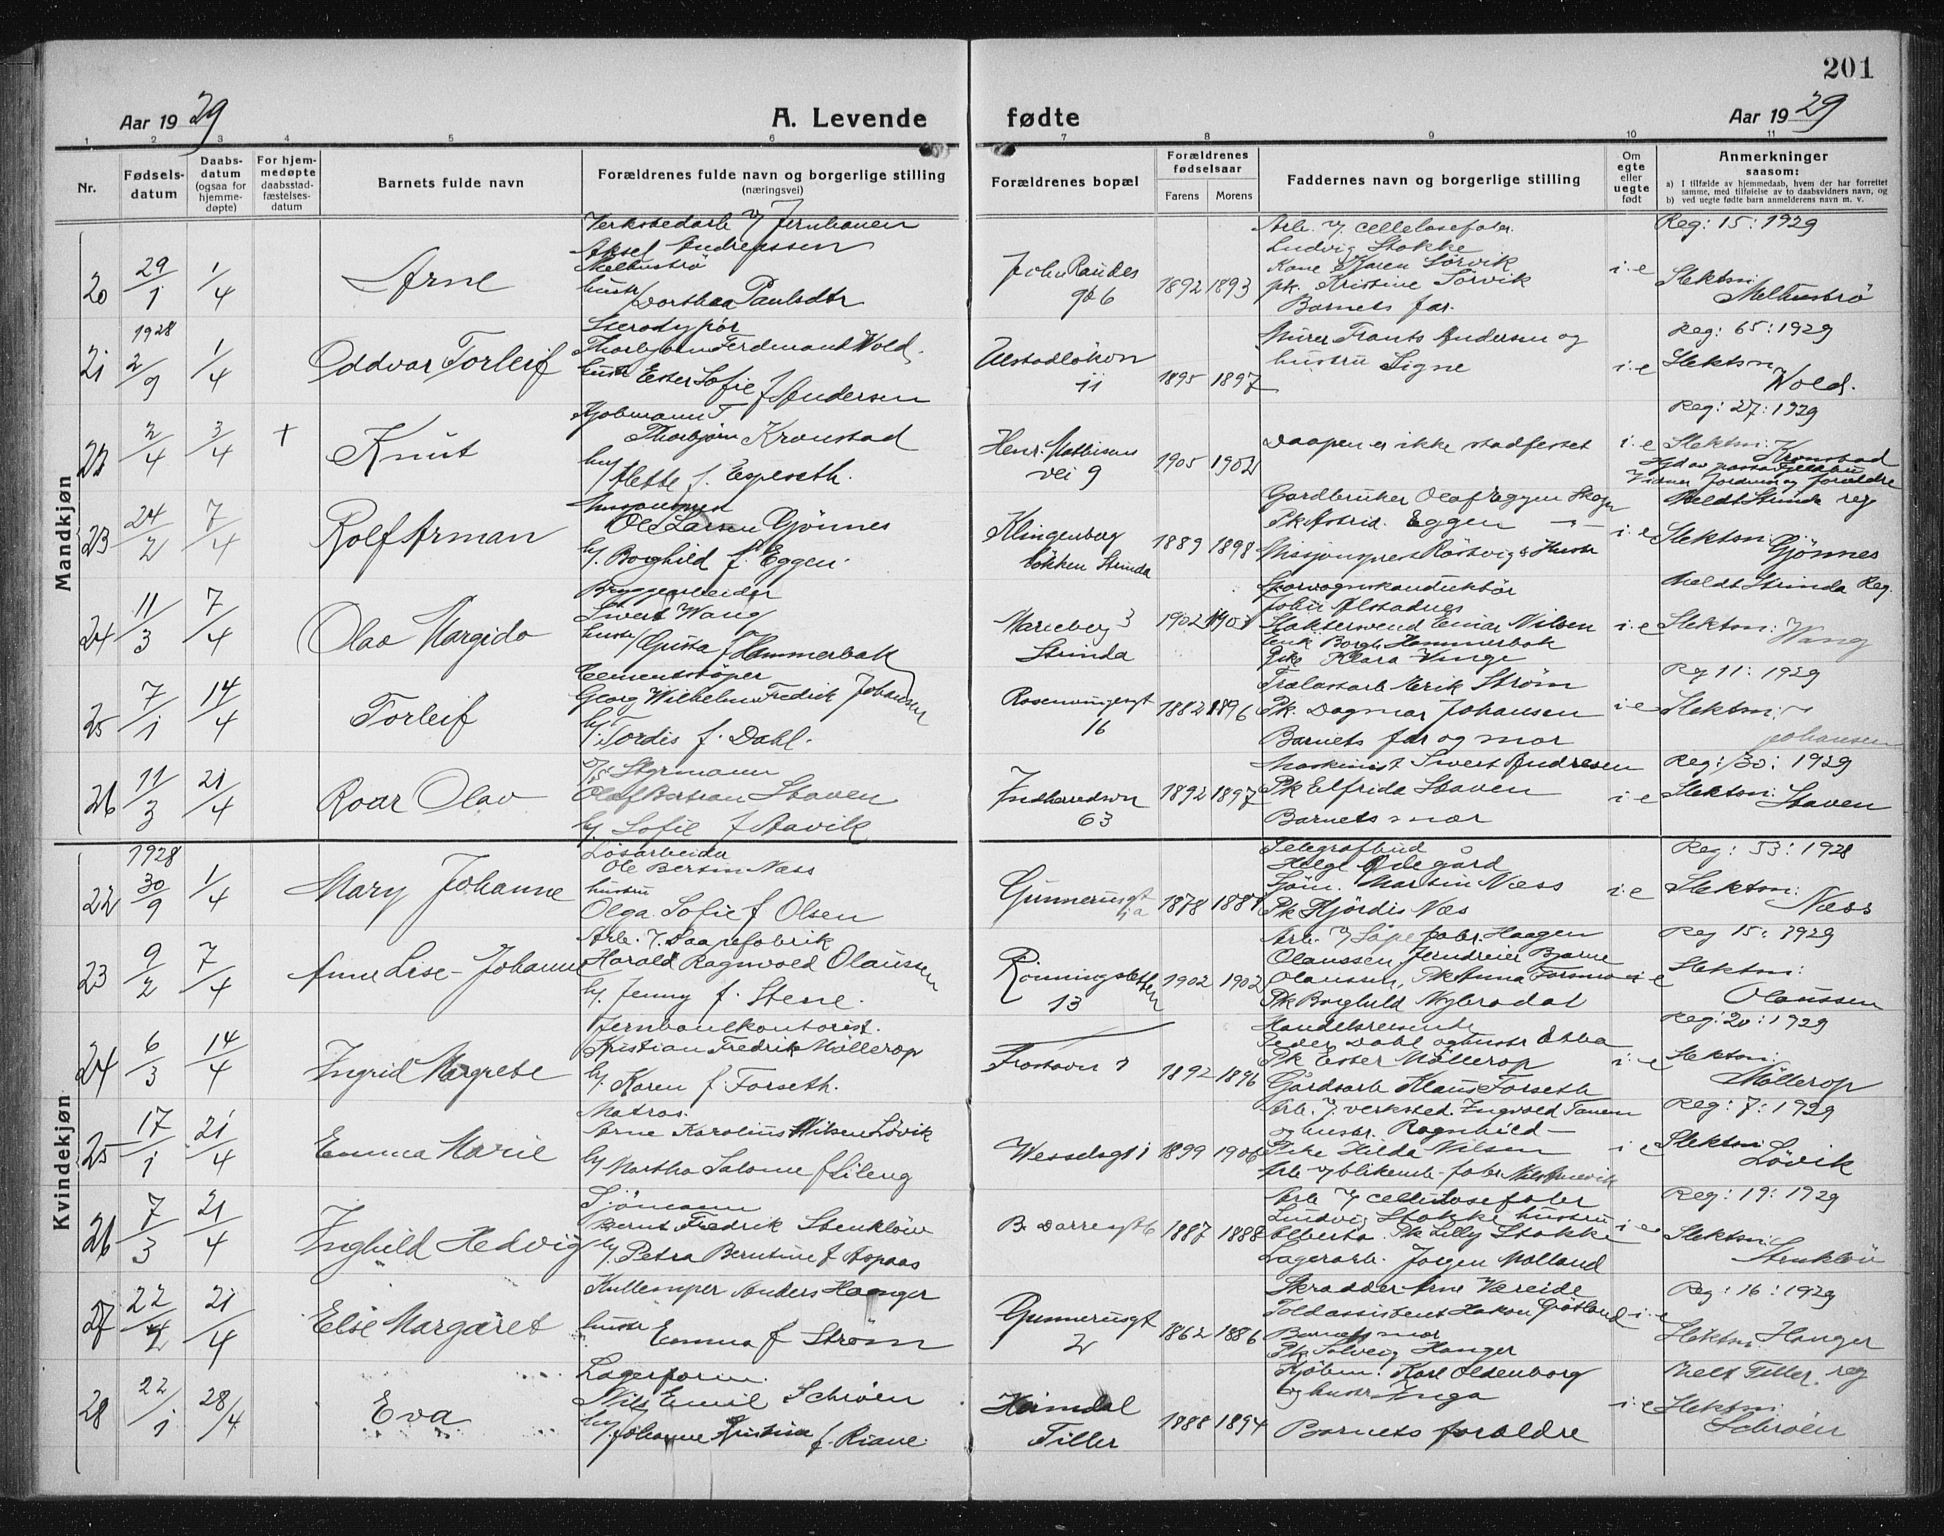 201
Aar 1929
A. Levende
fødte
Aar 1929
1 2 3 4 5 6 7 8 9 10 11
Nr.
Fødsels-
datum
Daabs-
datum
(ogsaa for
hjemme-
døpte)
For hjem-
medøpte
daabsstad-
fæstelses-
datum
Barnets fulde navn
Forældrenes fulde navn og borgerlige stilling
(næringsvei)
Forældrenes bopæl
Forældrenes
fødselsaar
Farens
Morens
Faddernes navn og borgerlige stilling
Om
egte
eller
uegte
født
Anmerkninger
saasom:
a) I tilfælde av hjemmedaab, hvem der har forrettet
samme, med tilføielse av to daabsvidners navn, og
b) ved uegte fødte barn anmelderens navn m. v.
Mandkjøn
20
29/1
1/4
Arne
Verkstedarb v/ Jernbanen
Aksel Andreassen
Melhustrø
hustr/ Dorthea Paulsdtr
1892 1893
Arb. v/ cellulosefabr.
Ludvig Stokke
Kone Karen Sørvik
pk. Kristine Sørvik
Barnets far.
i-e
Reg: 15: 1929
Slektsn:
Melhustrø
21
1928
2/9
1/4
Oddvar Torleif
Thorbjørn Ferdinand Wold.
hustr Ester Sofie f Andersen
11
1895 1897
Murer Frants Andersen og
hustru Signe
i-e
Reg: 65: 1929
Slektsn:
Wold.
22
2/4
3/4
+
Knut
Kjøbmann T
Thorbjørn Kronstad
h/ Mette f. Espeseth.
Henr. Mathisens
vei 9
1905 1902
Daapen er ikke stadfestet
i-e
Reg: 27: 1929
Slektsn: Kronstad
23
24/2
7/4
Rolf Arman
Ole Larsen Gjønnes
h/. Borghild f. Eggen.
Klingenberg
løkken Strinda
1889 1898
Gardbruker Olaf Eggen
Pk Astrid. Eggen
i-e
Meldt Strinda reg
Slektsn:
Gjønnes
24
11/3
7/4
Olav Margido
Bryggearbeider
Sivert Wang
hustr/ Gusta f Hammerbak
Marieberg 3
Strinda
1902
Sporvognskonduktør
Slaktersvend Einar Nilsen
Enk Borgh. Hammerbak
Klara Vinge
i-e
Meldt Strinda Reg.
Slektsn: Wang
25
7/1
14/4
Torleif
Cementstøper
Georg Wilhelm Fredrik Johansen
h/. Tordis f. Dahl.
16
1882 1896
Trælastarb Erik Strøm
Pk. Dagmar Johansen
Barnets far og mor
i-e
Reg 11: 1929
Slektsn:
Johansen
26
11/3
21/4
Roar Olav
Styrmann
Olaf Staven
h/. Sofie f Aavik
63
1892 1897
Maskinist Sivert Andresen
Pk Elfrida Staven
Barnets mor
i-e
Reg: 30: 1929
Slektsn: Staven
Kvindekjøn
22
1928
30/9
1/4
Mary Johanne
Løsarbeider
Ole Næss
hustru
Olga Sofie f Olsen
Gunnerusgt
1878
Telegrafbud
Helge Ødegård
Sjøm. Martin Næss
Pk Hjördis Næs
i-e
Reg: 53: 1928
Slektsn:
Næss
23
9/2
7/4
Anne Lise-Johanne
Arb. v. Saapefabrik
Harald Ragnvald Olaussen
h/. Jenny f. Stene.
Rönningsletten
13
1902 1902
Arb. v/ Såpefabr. Haagen
Olaussen, Jerndreier Bjarne
Olaussen, Pk Anna
Pk Borghild
i-e
Reg 15: 1929
Slektsn:
Olaussen
24
6/3
14/4
Ingrid Margrete
Jernbanekontorist.
Kristian Fredrik Möllerop
h/. Karen f. Forseth.
1892 1896
Handelsreisende
Peder Dahl og hustr Ebba
Pk Ester Möllerop
Gårdsarb Klaus Forseth
i-e
Reg: 20: 1929
Slektsn:
Möllerop
25
17/1
21/4
Emma Marie
Matros.
Arne Karolius Nilsen Lövik
h/ Martha Salome f Lileng
Wesselsgt 1
1899 1906
Arb. v. verksted. Ingvald Tanem
og hustr. Ragnhild
Pike Hilda Nilsen
i-e
Reg: 7: 1929
Slektsn:
Lövik
26
7/3
21/4
Inghild Hedvig
Sjömann
Bernt Fredrik Stenkløv
h/. Petra Berntine f Aspaas
1887 1888
Arb v/ cellulosefabr
Ludvig Stokke hustru
Alberta. Pk Lilly Stokke
Lagerarb. Jørgen Molland
i-e
Reg: 19: 1929
Slektsn:
Stenkløv
27
21/4
Else Margaret
Kullemper Anders Hanger
hustr Emma f Strøm
Gunnerusgt
1862 1886
Skrædder Arne Væreide
Toldassistent Hakon
Barnets mor
Pk Solveig Hanger
i-e
Reg: 16: 1929
Slektsn: Hanger
28
22/1
28/4
Eva
Lagerform.
Nils Emil Schrøen
h/ Johanne Kristina f. Riane.
Heimdal
Tiller
1888 1894
Kjøbm. Karl Oldenborg
og hustr Inga
Barnets foreldre
i-e
Meldt Tiller. reg
Slektsn:
Schrøen